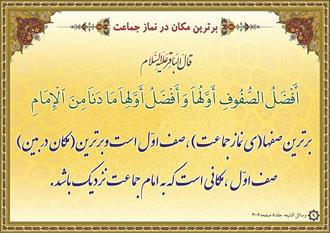 برترین مکان در نماز جماعت
قالَ الْباقِرُ عَلَيْهِ السَّلام
أَفْضَلُ الصُّفُوفِ أَوَّلُهَا وَ أَفْضَلُ أَوَّلِهَا مَا دَنَا مِنَ الْإِمَامِ
برترین صفها(ی نماز جماعت) ، صف اوّل است و برترین (مکان در بین)
صف اوّل ، مکانی است که به امام جماعت نزدیک باشد.
وسائل الشیعه جلد۸ صفحه۳۰۶